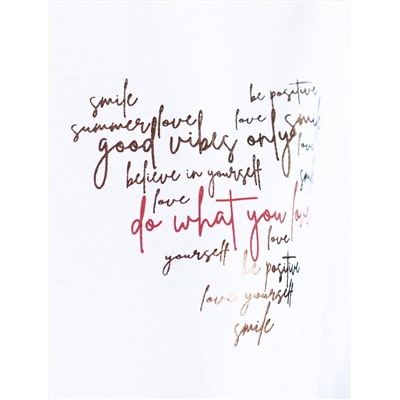 smile be positive
summer love love smile
good vibes only love
believe in yourself smile
love
do what you love
love
yourself be positive
love yourself
smile